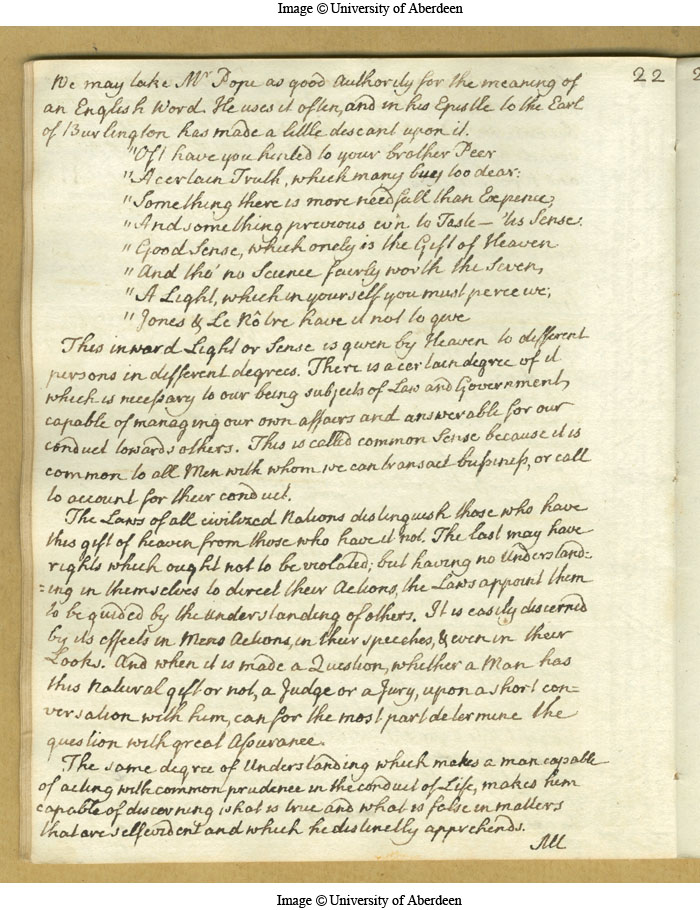 Image © University of Aberdeen
22
We may take Mr Pope as good Authority for the meaning of
an English Word. He uses it often, and in his Epistle to the Earl
of Burlington has made a little descant upon it.
"Oft have you hinted to your brother Peer
"A certain Truth, which many buy too dear:
"Something there is more needfull than Expence,
"And something previous ev'n to Taste – 'tis Sense.
"Good Sense, which onely is the Gift of Heaven
"And tho' no Science fairly worth the Seven,
"A Light, which in yourself you must perceive;
"Jones & Le Nôtre have it not to give
This inward Light or Sense is given by Heaven to different
persons in different degrees. There is a certain degree of it
which is necessary to our being subjects of Law and Government,
capable of managing our own affairs and answerable for our
conduct towards others. This is called common Sense because it is
common to all Men with whom we can transact bussiness, or call
to account for their conduct.
The Laws of all civilized Nations distinguish those who have
this gift of heaven from those who have it not. The last may have
rights which ought not to be violated; but having no Understand=
=ing in themselves to direct their Actions, the Laws appoint them
to be guided by the Understanding of others. It is easily discerned
by its effects in Mens Actions, in their speeches, & even in their
Looks. And when it is made a Question, whether a Man has
this Natural gift or not, a Judge or a Jury, upon a short con=
versation with him, can for the most part determine the
question with great Assurance.
The same degree of Understanding which makes a man capable
of acting with common prudence in the conduct of Life, makes him
capable of discerning what is true and what is false in matters
that are selfevident and which he distinctly apprehends.
All
Image © University of Aberdeen